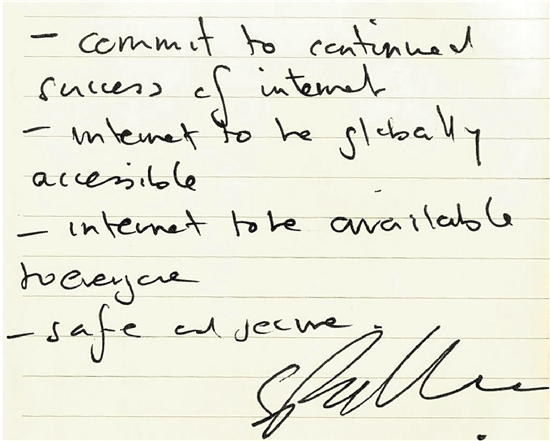 - commit to continued
success of internet
- internet to be globally
accessible
- internet to be available
to everyone
- safe and secure.